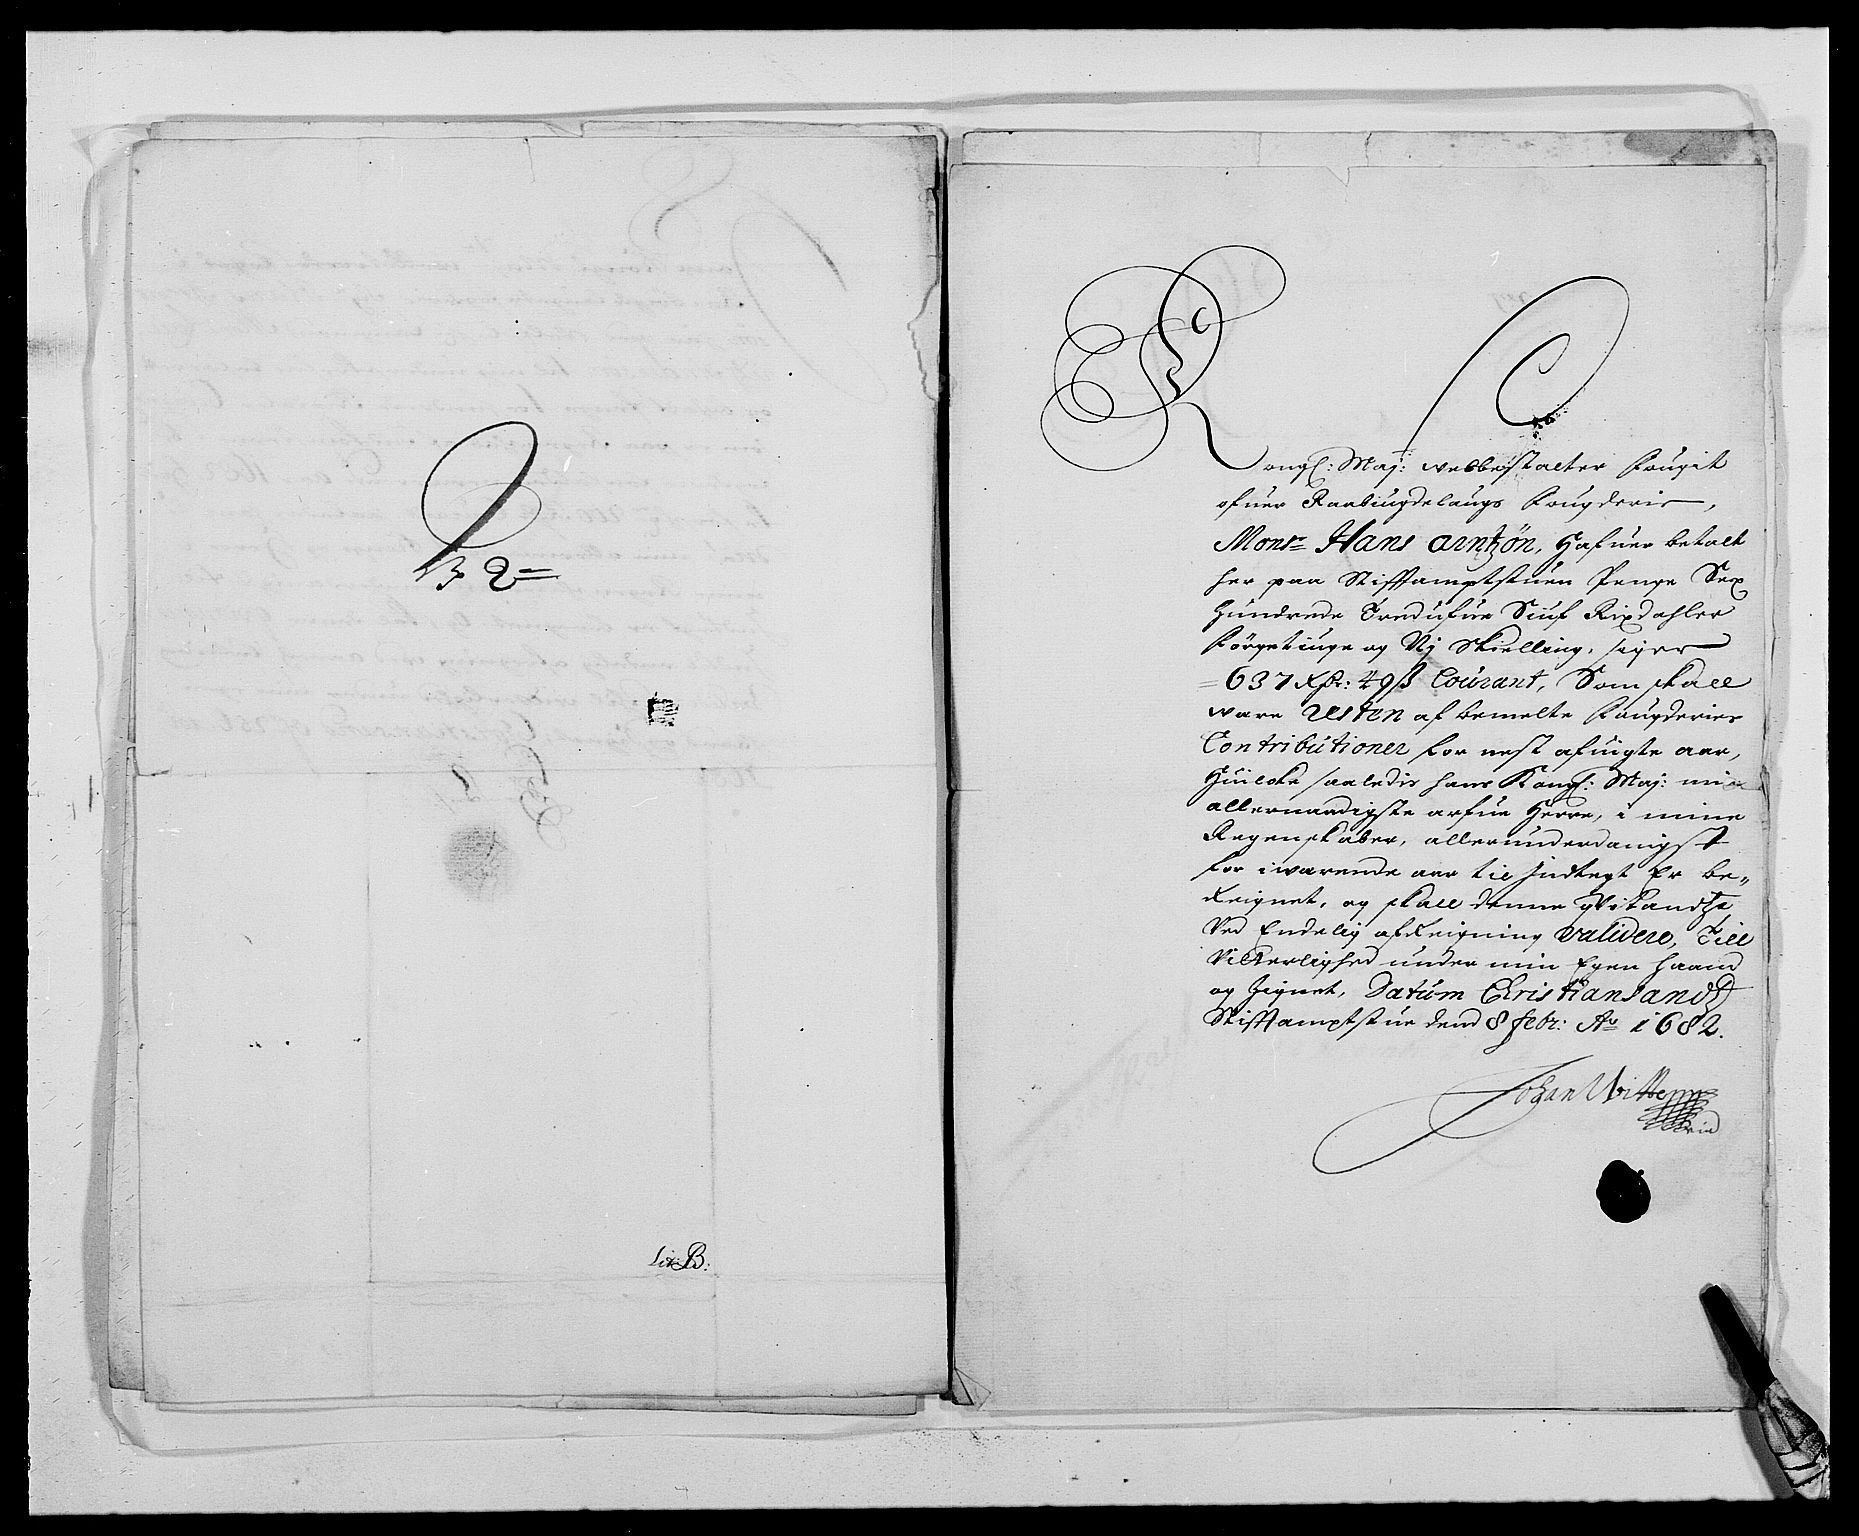 N 2
Lit: B:
Kongl: Maj: velbestalter Fougit
ofuer Raabiugdelaugs Fougderie,
Monsr Hans Arntzøn, Hafuer betalt
her paa Stifftamptstuen Penge Sex
Hundrede Tredufue Siuf Rixdahler
Førgetiuge og Nj Skielling, siger
637 Rdr: 49 ß Courant, Som skall
være Resten af bemelte Fougderies
Contributioner for nest afuigte aar,
Huilcke saaledis hans Kongl: Maj: min
allernaadigste arfue Herre, i mine
Regenskaber, allerunderdanigst
for iværende aar til Indtegt Er be„
Reignet, og skall denne qvitandtze
Ved Endelig afReigning validere, Till
Vitterlighed under min Egen haand
og Zignet, Datum Christiansandtz
Stifftamptstue dend 8 febr: Ao 1682.
Johan Witten